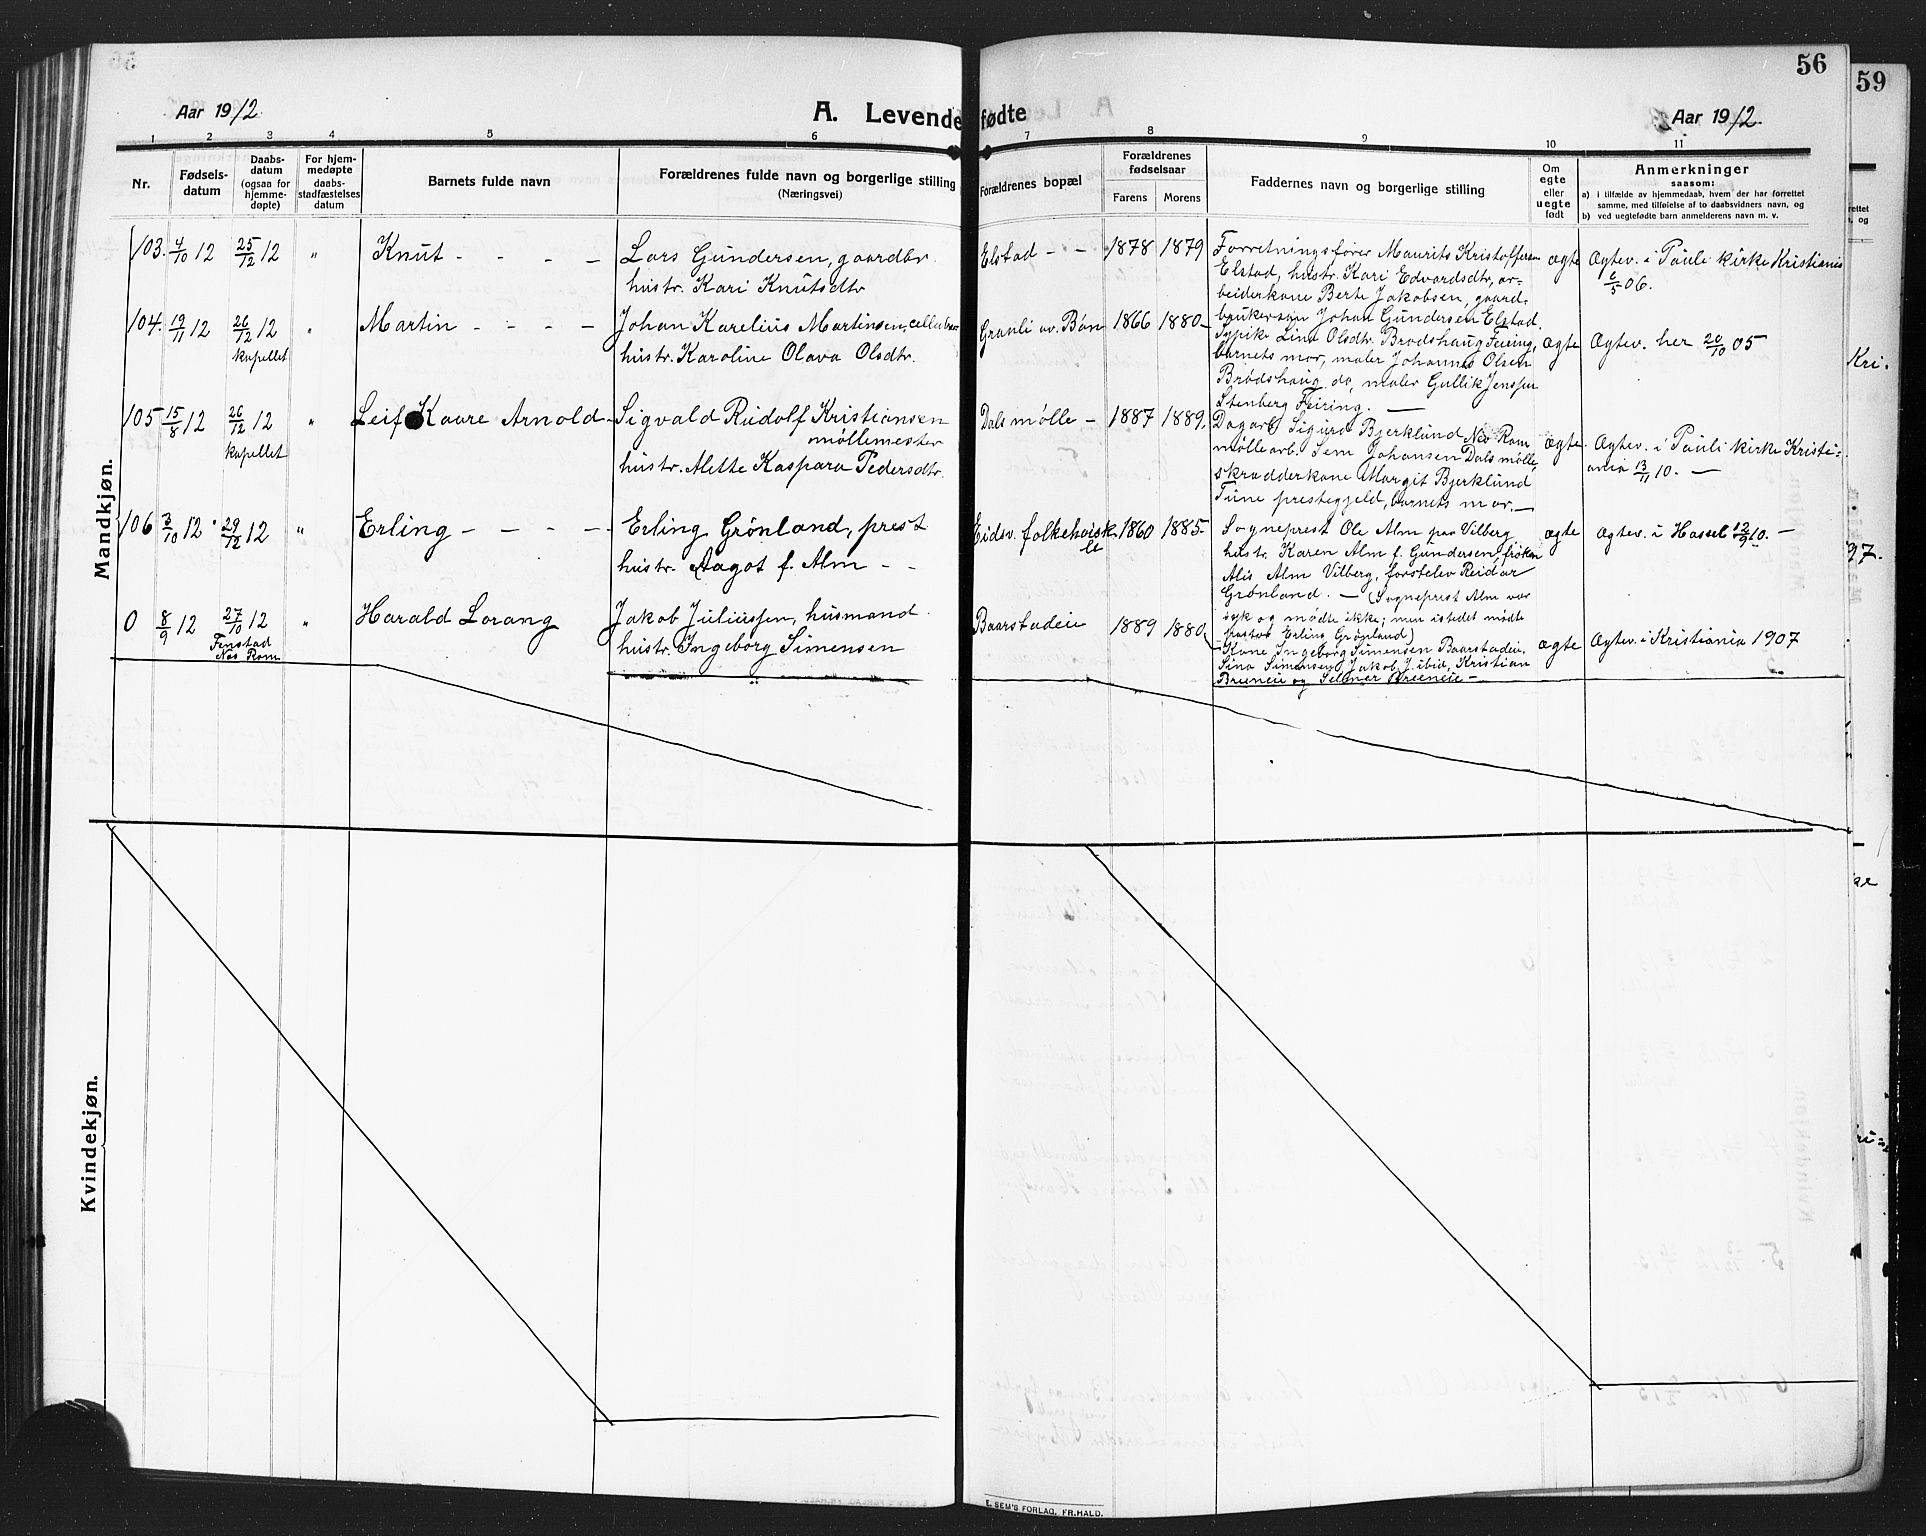 56
59
Aar 1912
A. Levendefødte
Aar 1912
1 2 3 4 5 6 7 8 9 10 11
Nr.
Fødsels-
datum
Daabs-
datum
(ogsaa for
hjemme-
døpte)
For hjem-
medøpte
daabs-
stadfæstelses
datum
Barnets fulde navn
Forældrenes fulde navn og borgerlige stilling
(Næringsvei)
Forældrenes bopæl
Forældrenes
fødselsaar
Farens
Morens
Faddernes navn og borgerlige stilling
Om
egte
eller
uegte
født
Anmerkninger
saasom:
a) i tilfælde av hjemmedaab, hvem der har forrettet
samme, med tilføielse af to daabsvidners navn, og
b) ved uegtefødte barn anmelderens navn m. v.
Mandkjøn.
103. 4/10 12 25/12 12 " Knut - - - -
Lars Gundersen, gaardbr.
hustr. Kari Knutsdtr
Elstad - - 1878 1879
Forretningsfører Maurits Kristoffersen
Elstad, hustr. Kari Edvardsdtr, ar-
beiderkone Berte Jakobsen, gaard-
brukersøn Johan Gundersen Elstad.
ægte Ægtev. i Pauli kirke Kristiania
6/5 06.
104. 19/11 12 26/12 12 " Martin - - - -
kapellet
Johan Karelius Martinsen,
hustr. Karoline Olava Olsdtr.
Granli av. Bøn 1866 1880
Pypike Lina Olsdtr. Brødshaug Feiring,
barnets mor, maler Johannes Olsen
Brødshaug do, maler Gullik Jensen
Stenberg Feiring. —
ægte Ægtev. her 20/10 05
105 15/8 12 26/12 12 " Leif Kaare Arnold
kapellet
Sigvald Rudolf Kristiansen
møllemester
hustr. Alette Kaspara Pedersdtr.
Dals mølle - 1887 1889.
Dagarb. Sigurd Bjerklund Nes Rom.
møllearb. Sem Johansen Dals mølle,
skrædderkone Margit Bjerklund
Tune prestegjeld, barnets mor. —
ægte Ægtev. i Pauli kirke Kristi-
ania 13/11 10. —
106 3/10 12 29/12 12 " Erling - - - -
Erling Grönland, prest
hustr. Aagot f. Alm - -
Eidsv. folkehøisk
le
1860 1885
Sogneprest Ole Alm paa Vilberg,
hustr. Karen Alm f. Gundersen, frøken
Alis Alm Vilberg, forstelev Reidar
Grönland. — (Sogneprest Alm var
syk og mødte ikke; men istedet mødte
pastor Erling Grønland)
ægte Ægtev. i Hassel 12/9 10. —
0 8/9 12 27/10 12 " Harald Lorang
Fenstad
Nes Rom.
Jakob Juliussen, husmand
hustr. Ingeborg Simensen
Baarstadeie 1889 1880
Kone Ingeborg Simensen Baarstadeie,
Sina Simensen, Jakob J. ibid, Kristian
Breeneie og Selmer Breeneie —
ægte Ægtev. i Kristiania 1907
Kvindekjøn.
E. SEM'S FORLAG, FR.HALD.